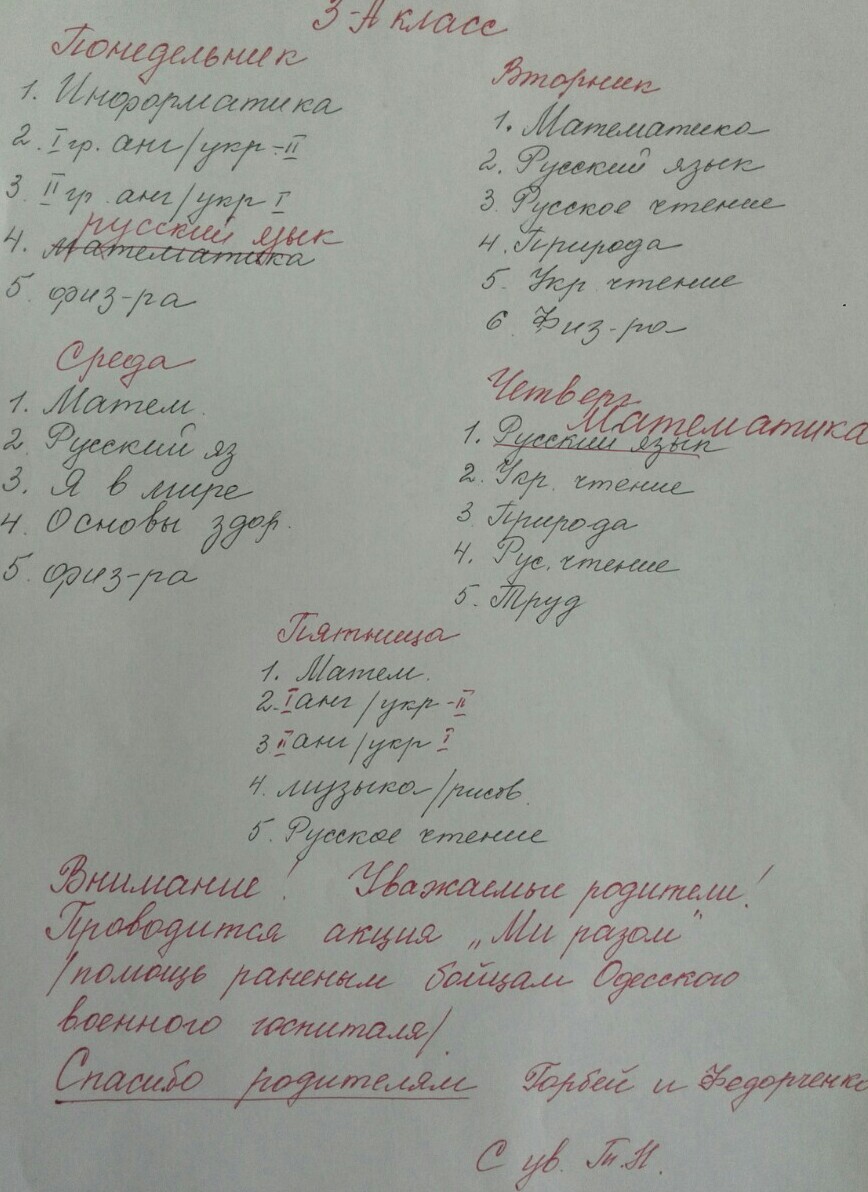 3-А класс
Понедельник
1. Информатика
2. I гр. анг/укр-II
3. II гр. анг/укр I
русский язык
4. Математика
5. физ-ра
Вторник
1. Математика
2. Русский язык
3. Русское чтение
4. Природа
5. Укр. чтение
6. Физ-ра
Среда
1. Матем.
2. Русский яз
3. Я в мире
4. Основы здор.
5. физ-ра
Четверг
Математика
1. Русский язык
2. Укр. чтение
3. Природа
4. Рус. чтение
5. Труд
Пятница
1. Матем.
2. I анг/укр-II
3 II анг/укр I
4. музыка/рисов.
5. Русское чтение
Внимание! Уважаемые родители!
Проводится акция „Ми разом"
/помощь раненым бойцам Одесского
военного госпиталя/
Спасибо родителям Горбей и Федорченко
С ув. Т.Н.